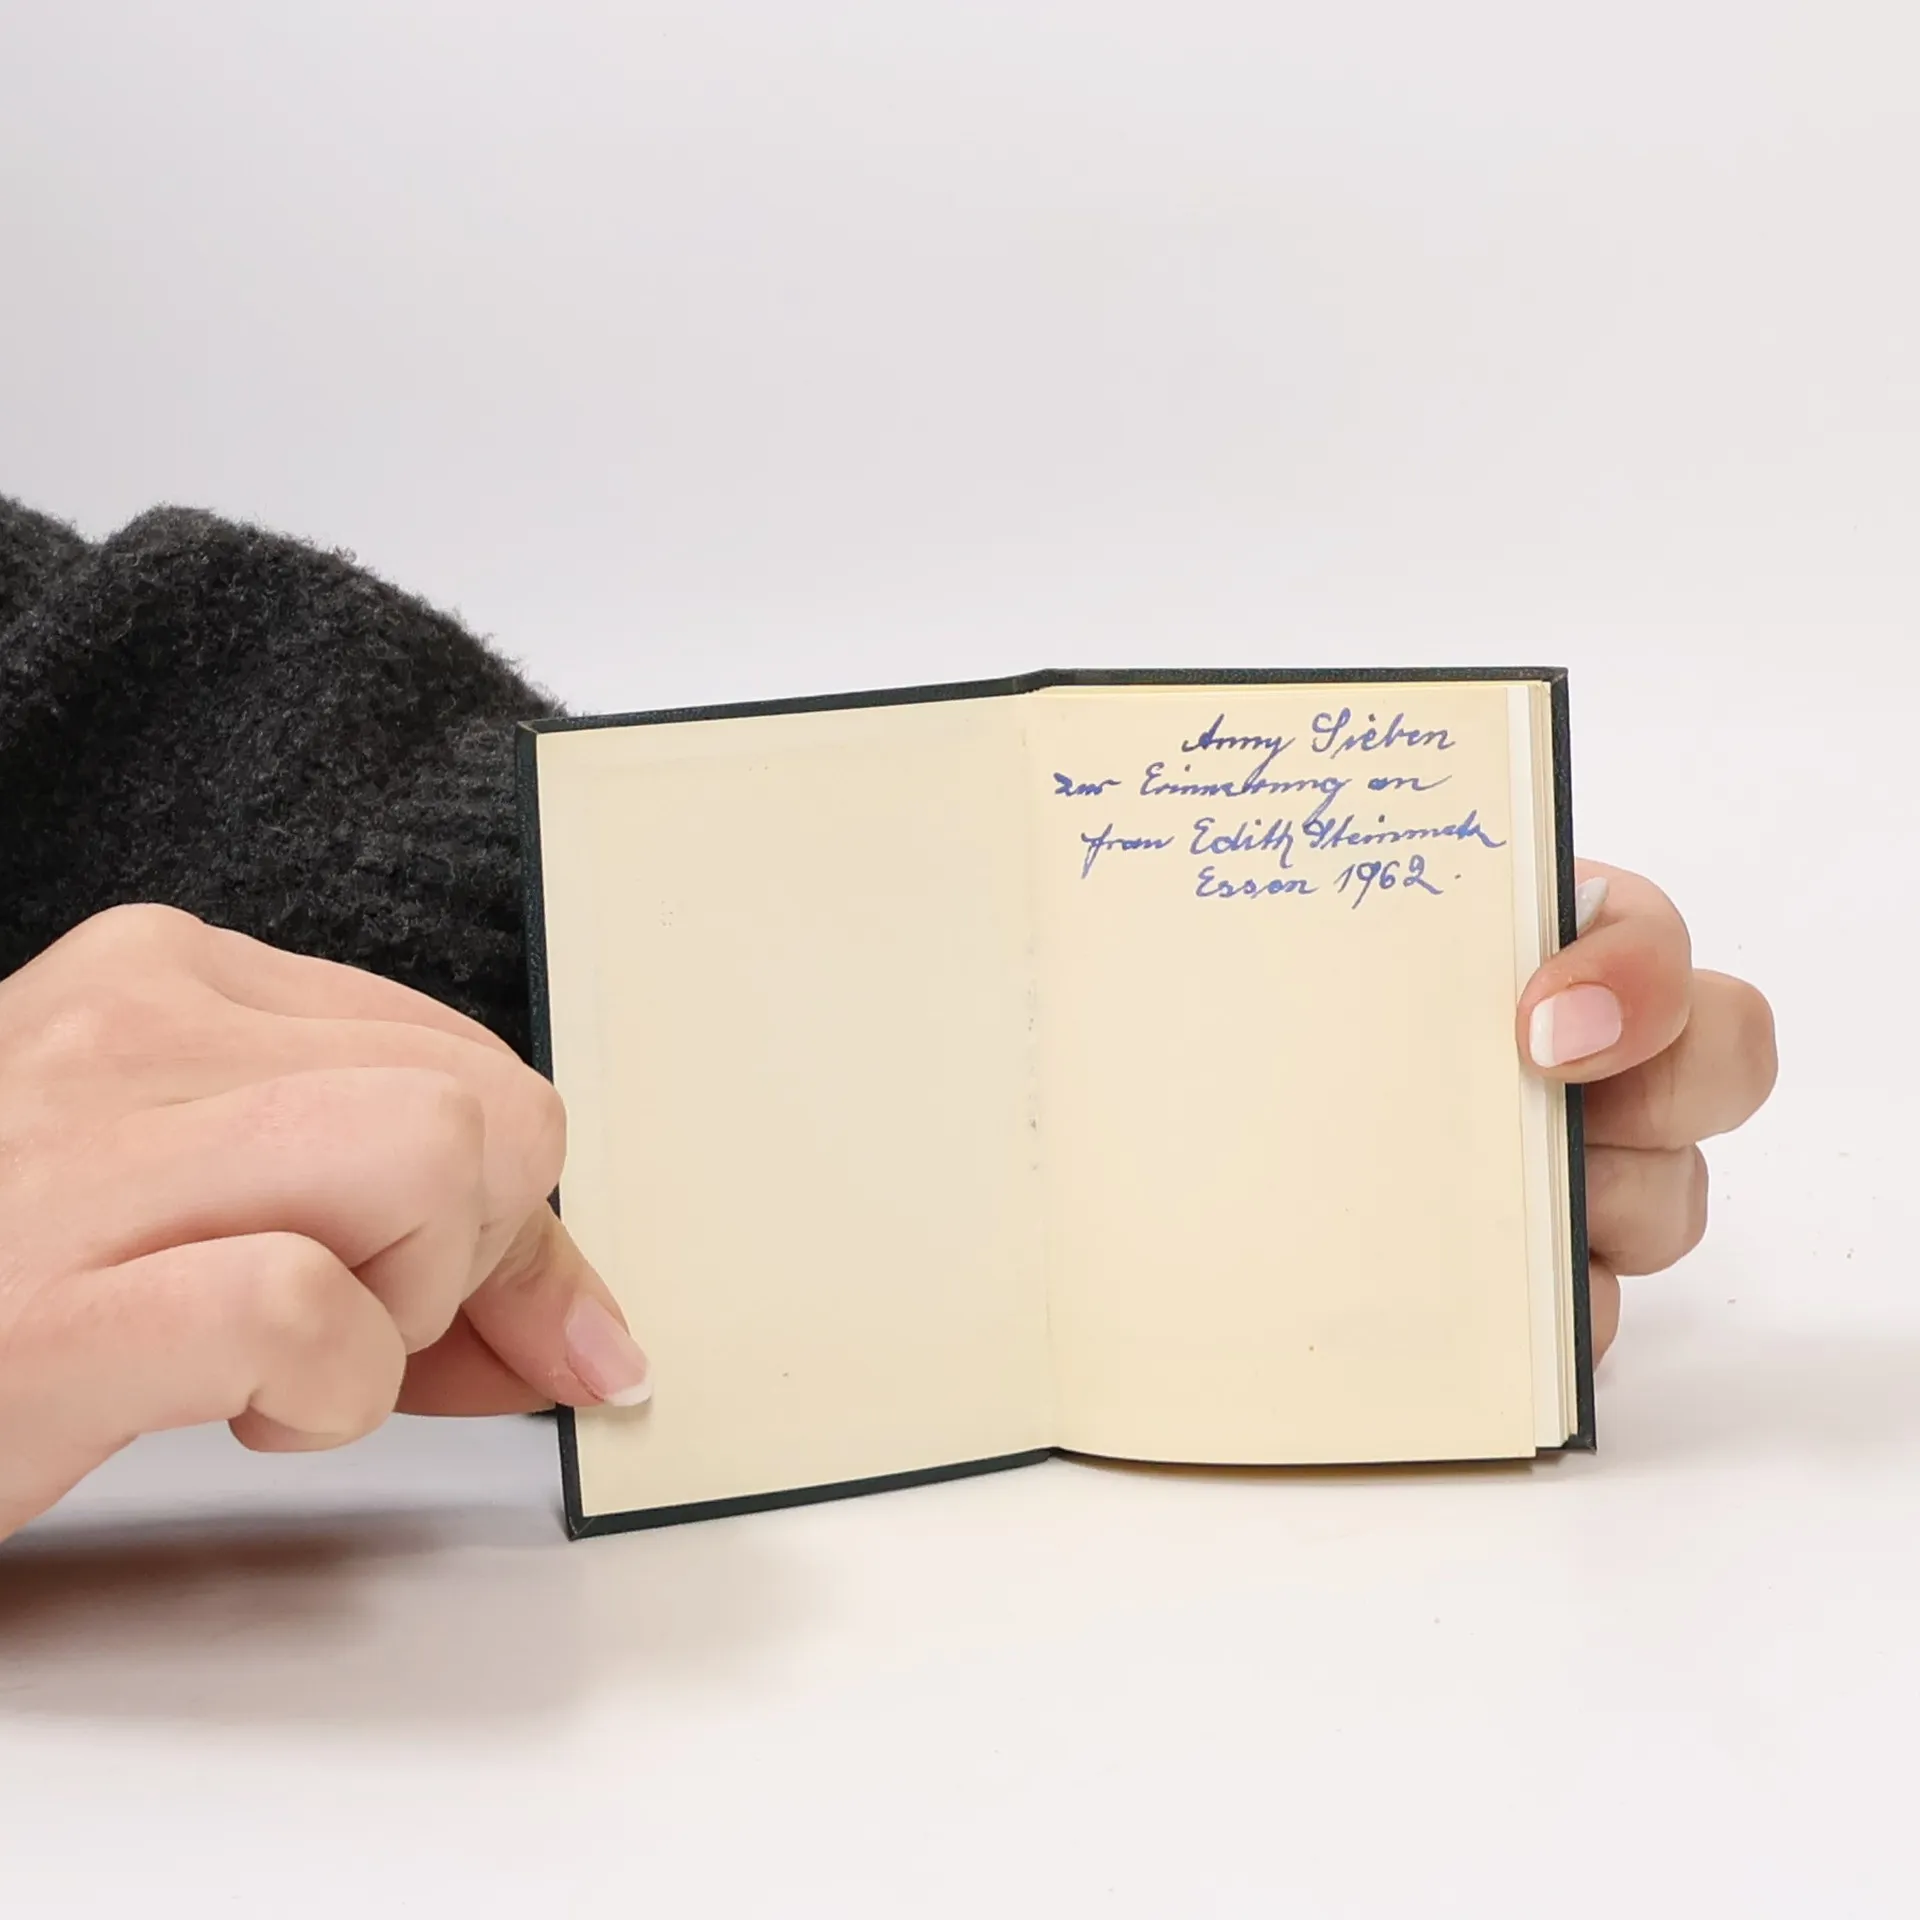 Anny Sieben
zur Erinnerung an
frau Edith Steinmetz
Essen 1962.